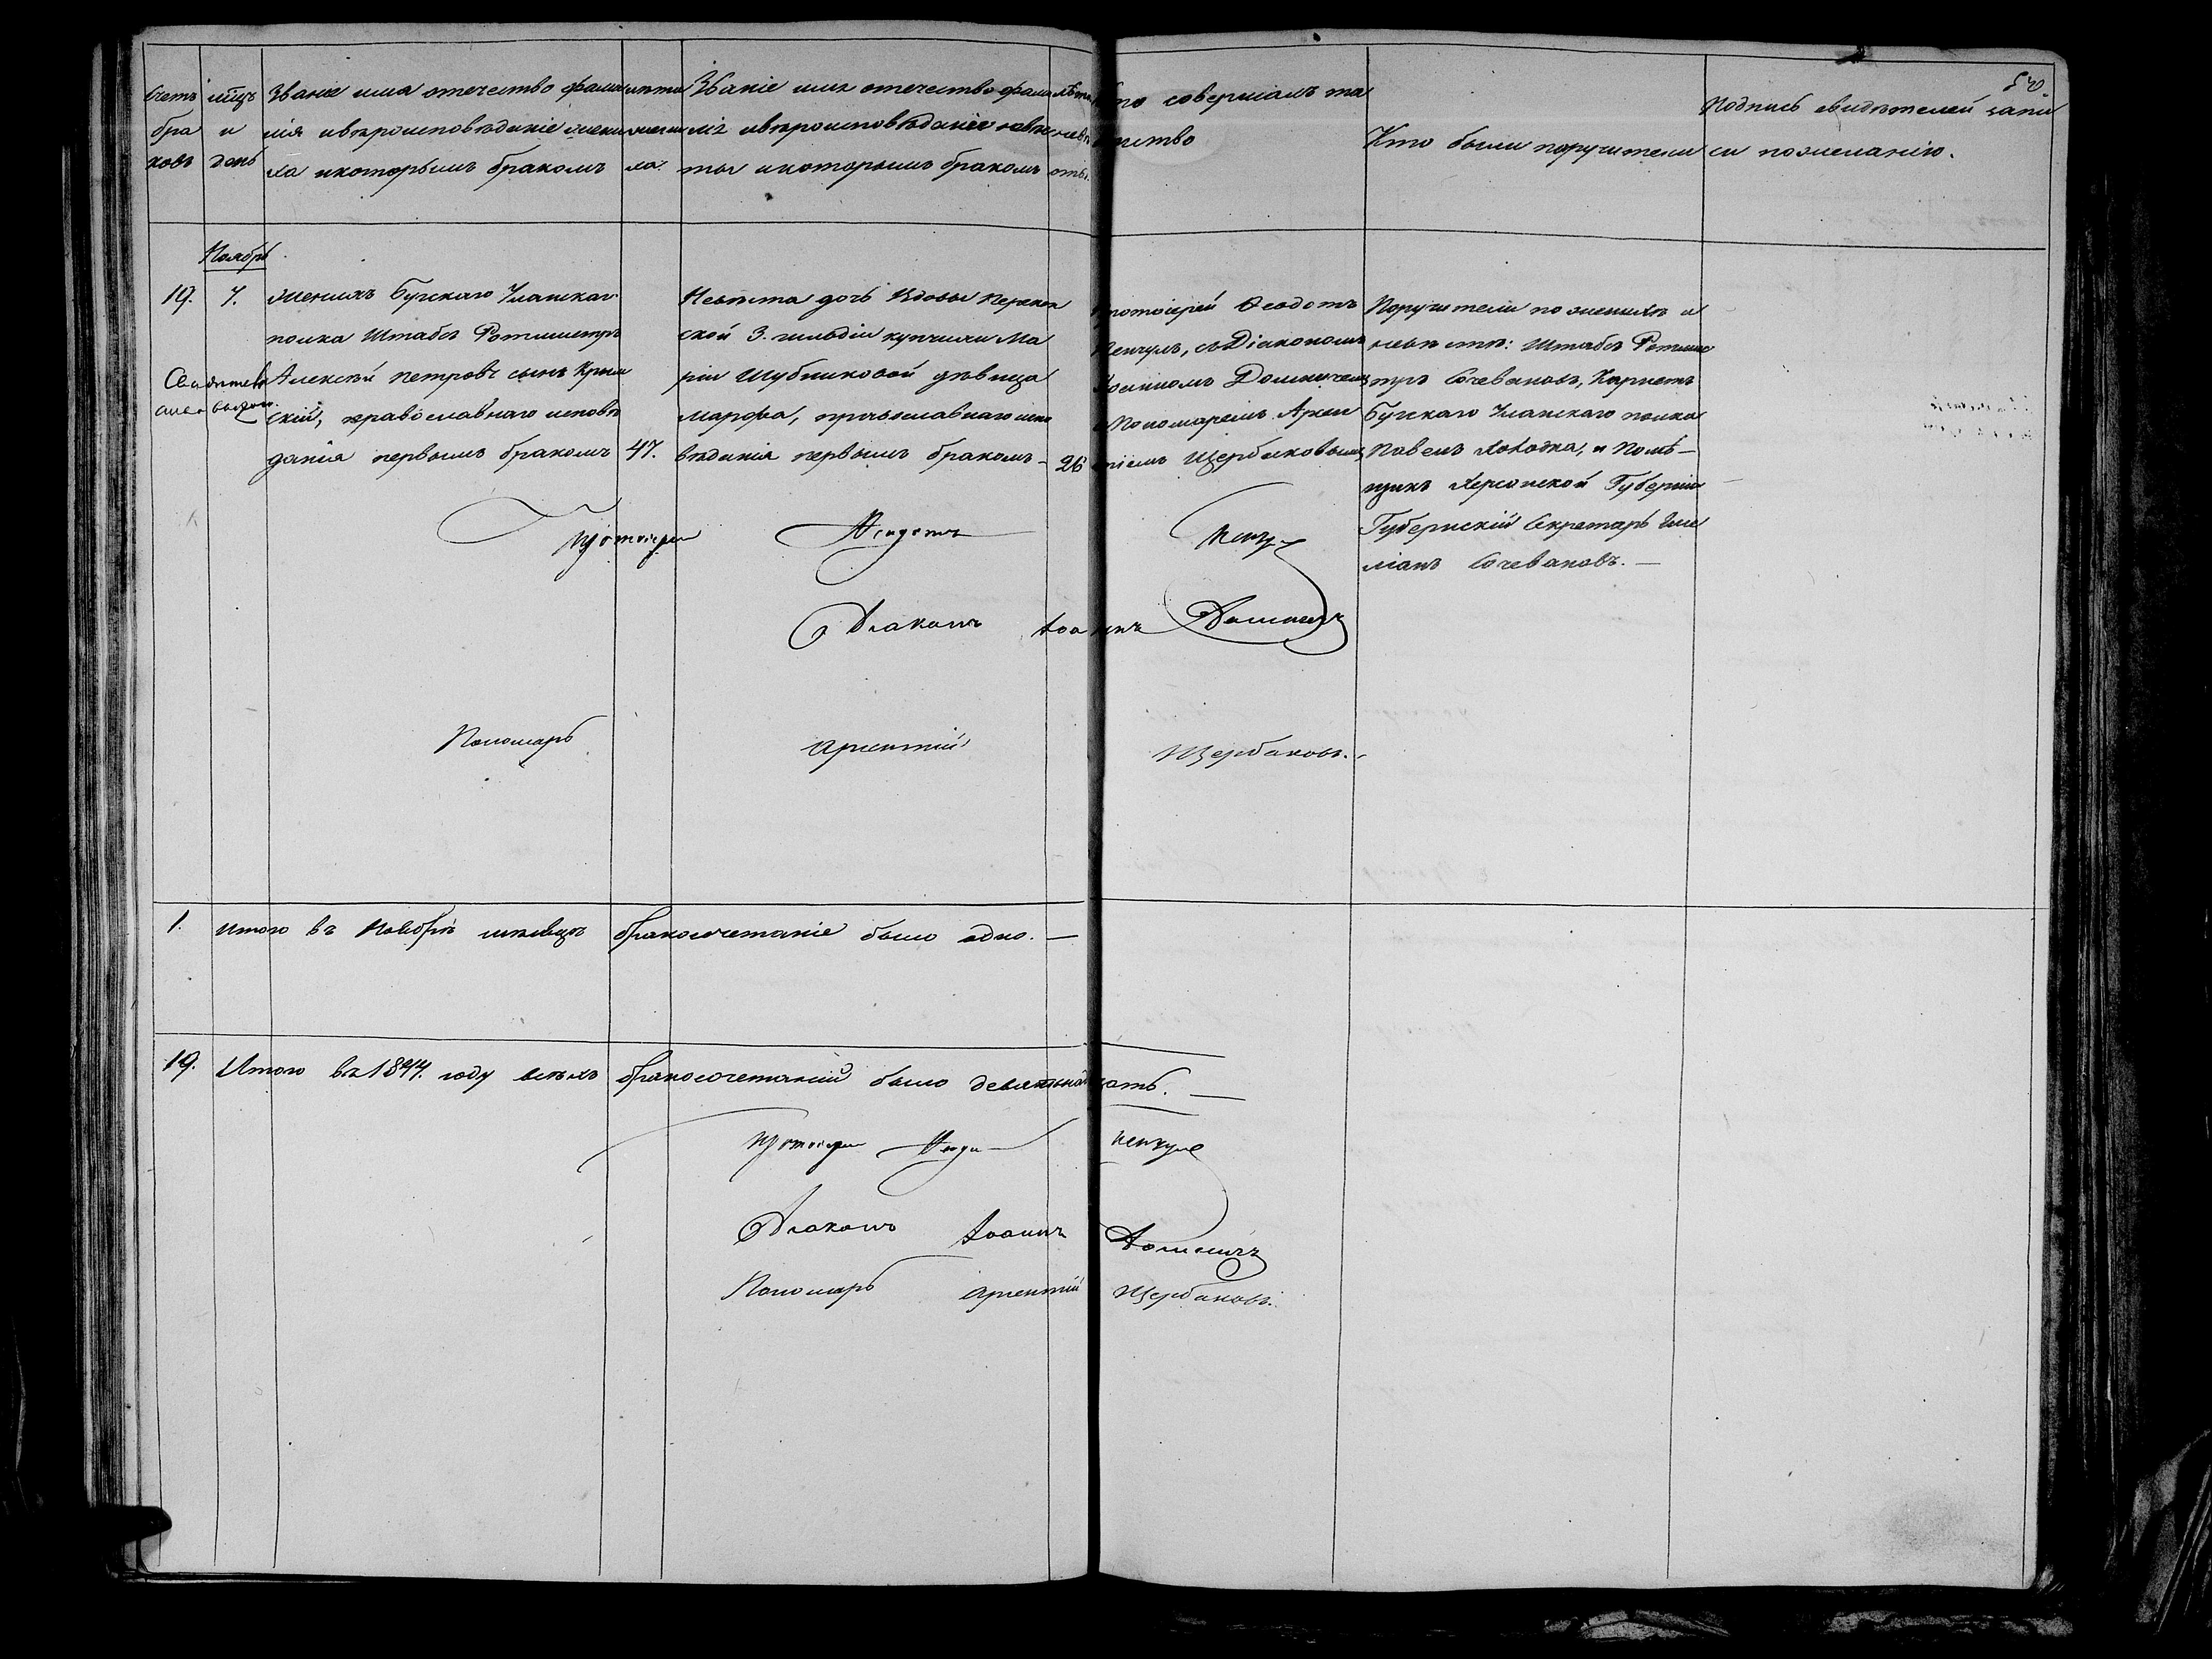 50.
Счетъ бра ковъ
мцъ и день
Званіе имя отечество фами
лія и вѣроисповѣданіе жени
ха и которымъ бракомъ
лѣта жени ха.
Званіе имя отечество фами
лія и вѣроисповѣданіе невѣс
ты и которымъ бракомъ
лѣта невѣсты.
Кто совершалъ та
инство
Кто были поручители
Подпись свидѣтелей запи
си по желанію.
Ноябрь
19. 7.
Женихъ Бугскаго Уланскаго
полка Штабсъ Ротмистръ
Алексѣй Петровъ сынъ Крым
скій, православнаго исповѣ
данія первымъ бракомъ 47.
Невѣста дочь Вдовы Херсон
ской 3. гильдіи купчихи Ма
ріи Шубниковой дѣвица
Марфа, православнаго испо
вѣданія первымъ бракомъ – 26
Протоіерей Ѳеодотъ
съ Діакономъ
Іоанномъ
и Пономаремъ Арсен
тіемъ Щербаковымъ
Поручители по женихѣ и
невѣстѣ: Штабсъ Ротмис
тръ Сочевановъ, Корнетъ
Бугскаго Уланскаго полка
Павелъ и Помѣ–
щикъ Херсонской Губерніи
Губернскій Секретарь
Сочевановъ. —
Протоіерей Ѳеодотъ
Діаконъ Іоаннъ
Пономарь Арсентій Щербаковъ.
1. Итого въ Ноябрѣ мѣсяцѣ бракосочетаніе было одно. —
19. Итого въ 1844. году всѣхъ бракосочетаній было девятнадцать. —
Протоіерей
Діаконъ Іоаннъ
Пономарь Арсентій Щербаковъ.